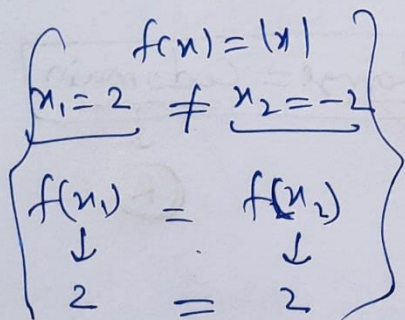 f(x) = |x|
x₁ = 2 ≠ x₂ = -2
f(x₁) = f(x₂)
↓ ↓
2 = 2